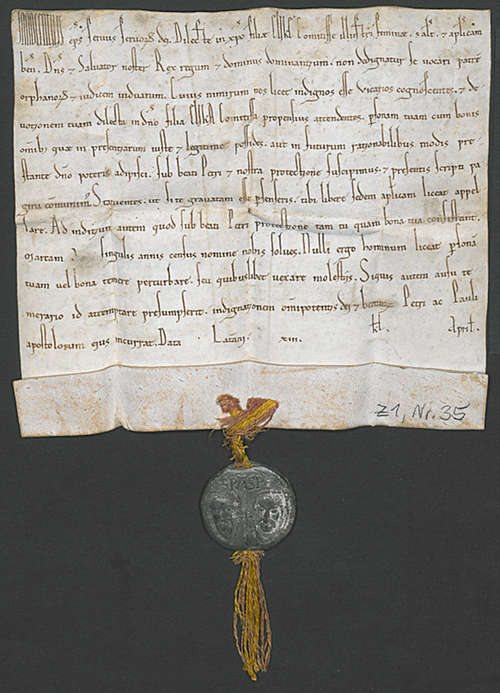 eps servus servoꝝ di. Dilecte in xpo filie comitisse illustri femine, salt. et aplicam
ben. Dns et Salvator noster Rex regum et dominus dominantium, non dedignatur se vocari patrē
orphanoꝝ et iudicem viduarum. Cuius nimirum nos licet indignos esse vicarios cognoscentes, et de
votionem tuam dilecta in dno filia comitissa propensius attendentes, psonam tuam cum bonis
omnib; que in presentiarum iuste et legitime possides, aut in futurum rationabilibus modis pre
stante dno poteris adipisci, sub beati Petri et nostra protectione suscipimus, et presentis scripti pa
gina communim; Statuentes, ut si te gravatam esse psenseris, tibi libere sedem aplicam liceat appel
lare. Ad inditium autem quod sub beati Petri protectione tam tu quam bona tua consistant,
singulis annis census nomine nobis solves. Nulli ergo hominum liceat psonā
tuam vel bona temere perturbare, seu quibuslibet vexare molestiis. Siquis autem ausu te
merario id attemptare presumpserit, indignationem omipotentis dei et beatoꝝ Petri ac Pauli
apostolorum eius incurrat. Data Latañ xiii. kł April.
Z1, Nr. 35